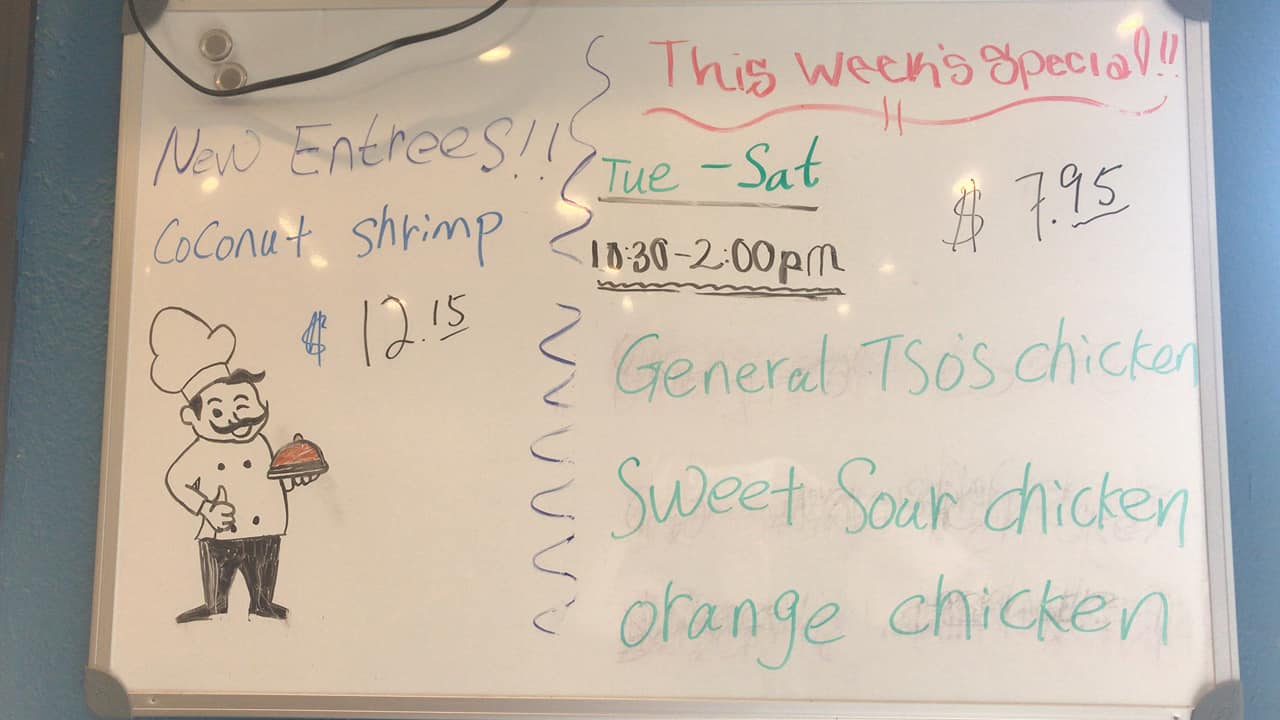 New Entrees!!
Coconut shrimp
$ 12.15
This Week's Special!!
Tue - Sat
$ 7.95
10:30-2:00pm
General TSO'S chicken
Sweet Sour chicken
orange chicken